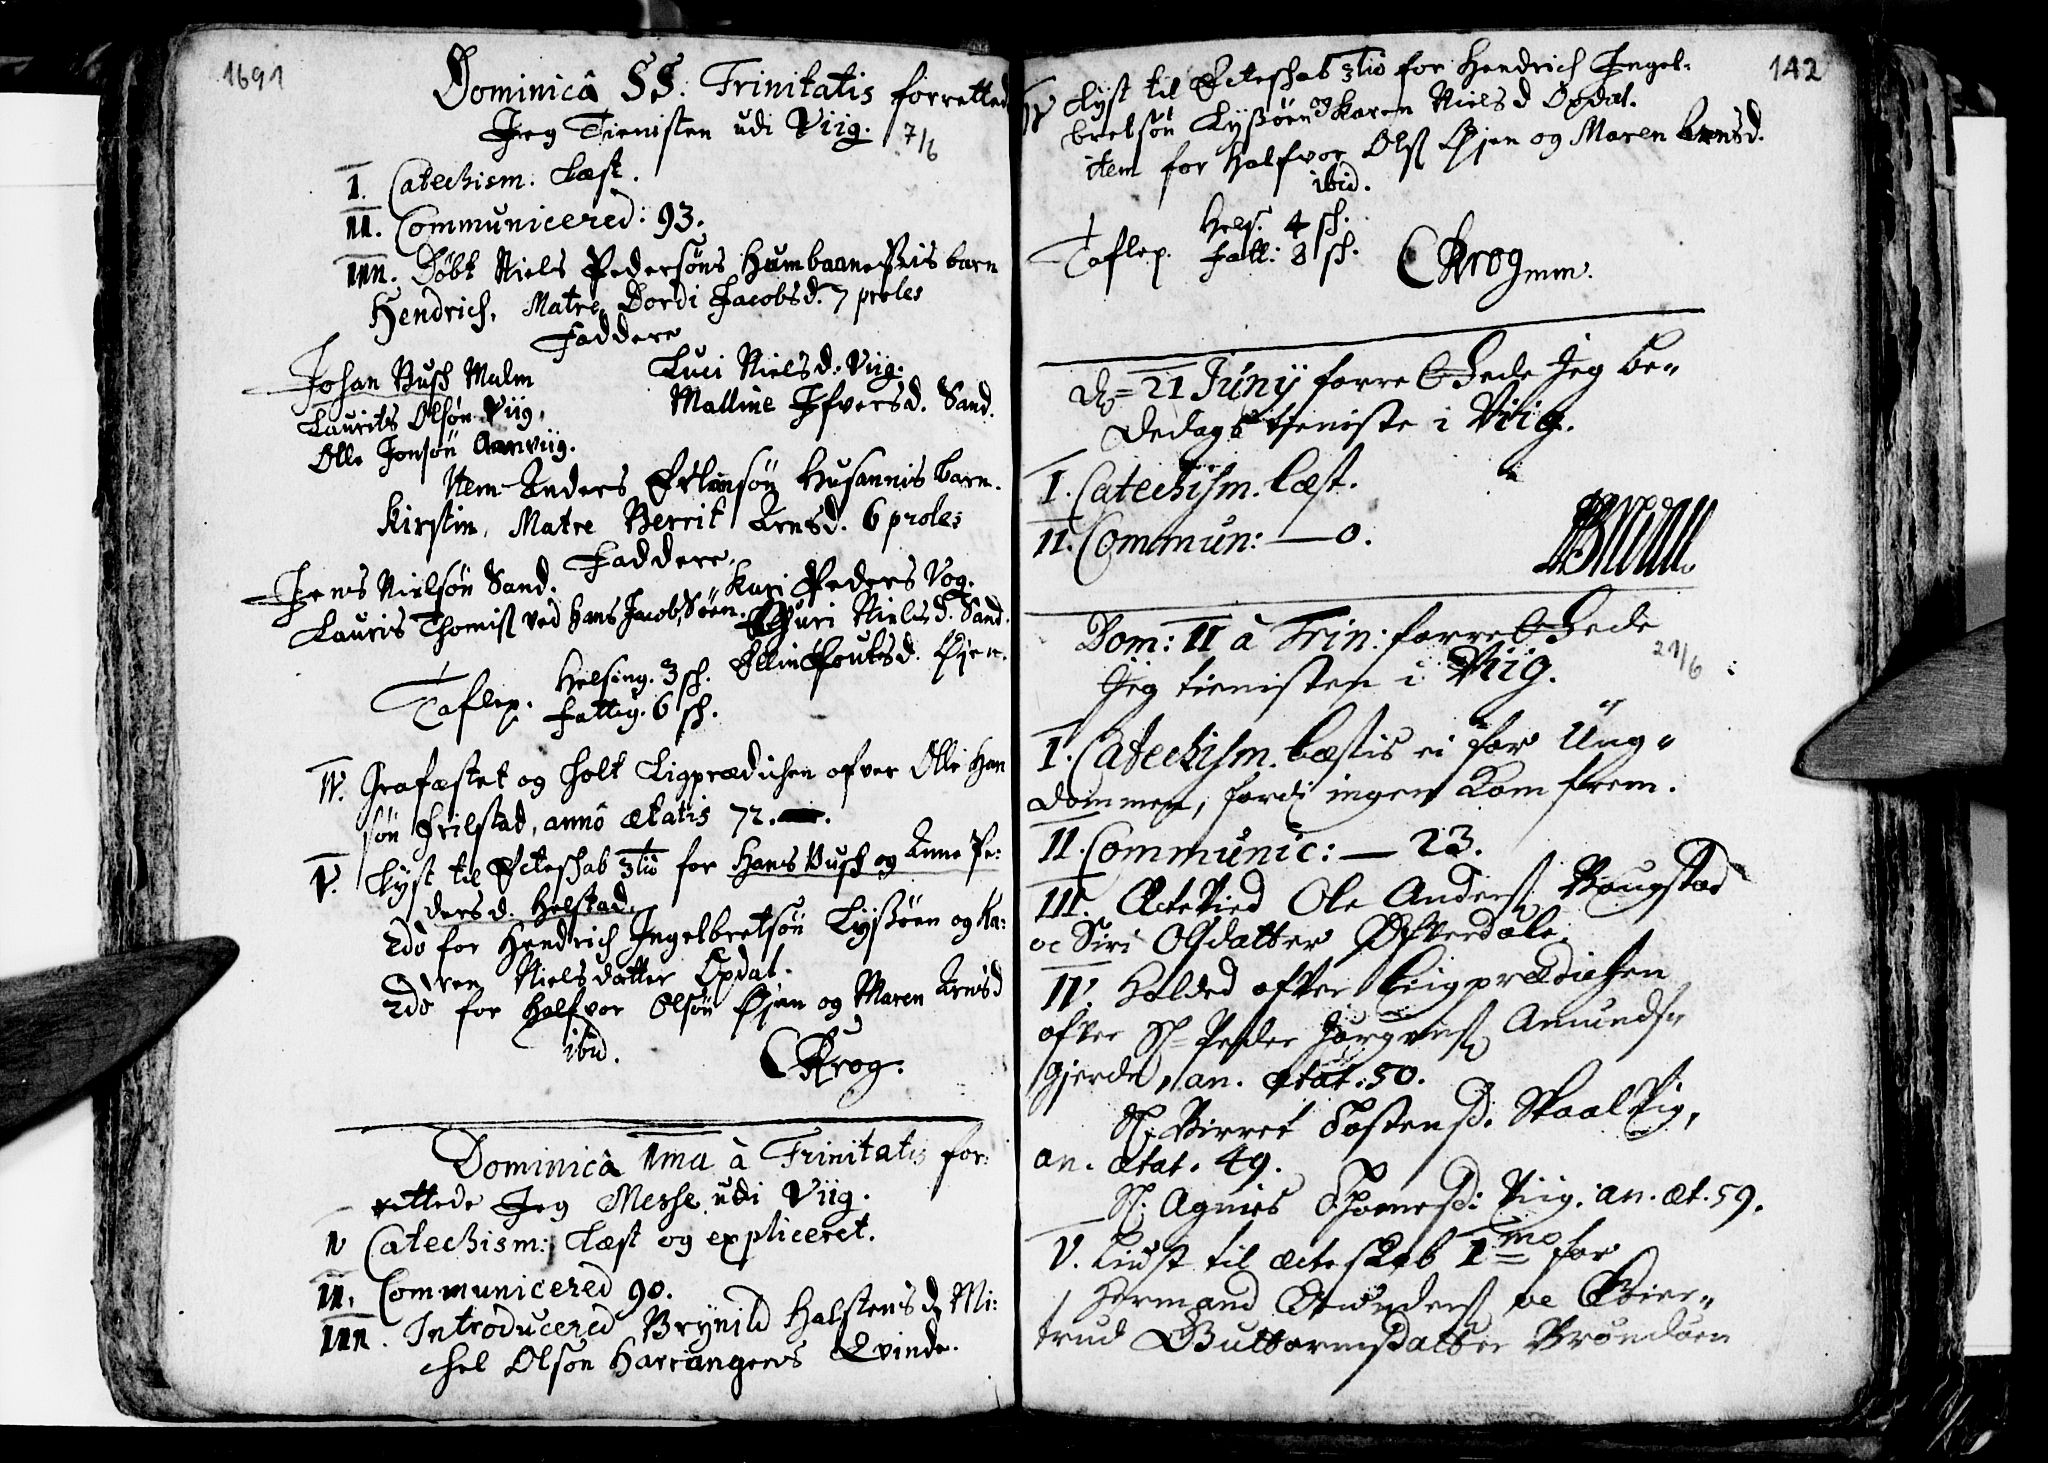 1691
Dominicâ SS. Trinitatis forretted
Jeg Tienisten udi Viig. 7/6
I. Catechism. Læst.
II. Communicered: 93.
III. Döbt Niels Pedersöns Humbaanes barn
Hendrich, Matre Dordi Jacobsd. 7 proles
Faddere
Johan Busch Malm
Laurits Olsön Viig,
Olle Jonsön Aanviig.
Luci Niels d. Viig.
Malline Ifvers d. Sand.
Item Anders Erlansön Husannis barn.
Kirstin, Matre Berrit Arnsd. 6 proles
Faddere.
Jens Nielsön Sand.
Lauris Thomiss ved Hans Jacobsöen.
Kari Peders Vog.
Guri Niels d. Sand.
Ellin Poulsd. Øjen.
Taflep. Helsing. 3 sh.
Fattig. 6 sh.
IV. Grafæstet og holt Ligprædichen ofver Olle Han
sön Frilstad, annô ætatis 72.
V. Lyst til Ecteshab 3tiô for Hans Bush og Anne Pe:
dersd. Helstad.
2dô for Hendrich Ingelbretsön Lyssöen og Ka:
ren Nielsdatter Opdal.
2dô for Halfvor Olsön Øjen og Maren Arnsd
ibid.
CKrog.
Dominicâ 1ma à Trinitatis for:
rettede Jeg Messe udi Viig.
I Catechism: Læst og expliceret.
II. Communicered 90.
III. Introducered Brynild Halstens d Mi:
chel Olsön Harrangens Qvinde.
142
IV Lyst til Ecteshab 3tiô for Hendrich Ingel:
bretsön Lyssöen og Karen Niels d Opdal.
item for Halfvor Olss Øjen og Maren Arnsd.
ibid.
Taflep. Hels: 4 sh.
Fatt: 8 sh.
CKrog mm.
D= 21 Junij forrettede Jeg Be-
dedags tieniste i Viig.
I. Catechism. læst.
II. Commun: — 0.
Dom: II à Trin: forrettede
Jeg tienisten i Viig. 21/6
I. Catechism. læstis ei for Ung-
dommen, fordi ingen Kom frem.
II. Communic: — 23.
III. Ectevied Ole Anderss Baugstad
oc Siri Olsdatter Østerdale.
IV. Holded efter Liigprædichen
ofver Sl= Peder Jörgenss Amunds-
gjerde, an. ætat. 50.
Sl. Birret Tostensd. Skaalvig,
an. ætat. 49.
Sl. Agnis Thomesd: Viig. an. æt. 59.
V. Liust til ecteskab 1mo for
Hermand Anderss oc Gier-
trud Guttormsdatter Bröndöen